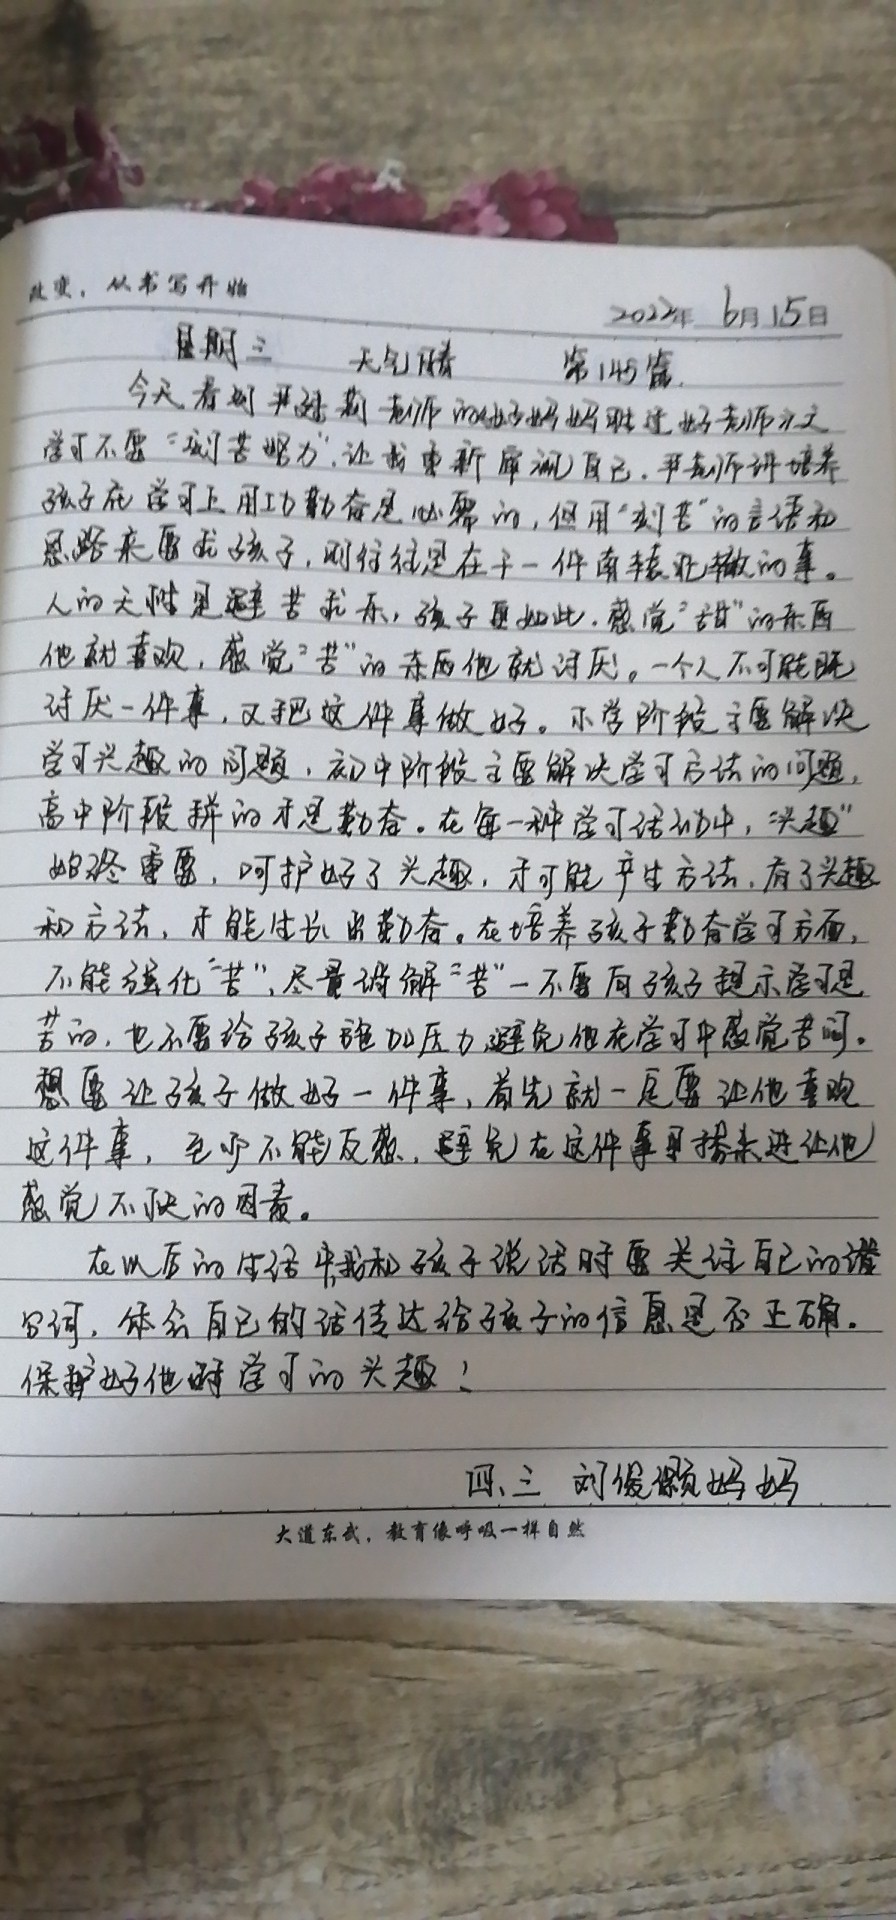 改变，从书写开始
2022年 6月15日
星期三 天气晴 第145篇
今天看到尹建莉老师的好妈妈胜过好老师一文
学习不要“刻苦努力”，让我重新审视自己．尹老师讲培养
孩子在学习上用功勤奋是必需的，但用“刻苦”的言语和
思路来要求孩子，则往往是在干一件南辕北辙的事。
人的天性是避苦求乐，孩子更如此．感觉“甜”的东西
他就喜欢，感觉“苦”的东西他就讨厌。一个人不可能既
讨厌一件事，又把这件事做好。小学阶段主要解决
学习兴趣的问题，初中阶段主要解决学习方法的问题，
高中阶段拼的才是勤奋。在每一种学习活动中，“兴趣”
始终重要，呵护好了兴趣，才可能产生方法，有了兴趣
和方法，才能生长出勤奋。在培养孩子勤奋学习方面，
不能强化“苦”，尽量消解“苦”一不要向孩子提示学习是
苦的，也不要给孩子施加压力，避免他在学习中感觉苦闷。
想要让孩子做好一件事，首先就一定要让他喜欢
这件事，至少不能反感．避免在这件事里掺杂进让他
感觉不快的因素。
在以后的生活中我和孩子说话时要关注自己的
，体会自己的话传达给孩子的信息是否正确．
保护好他对学习的兴趣！
四、三 刘俊颖妈妈
大道东武，教育像呼吸一样自然